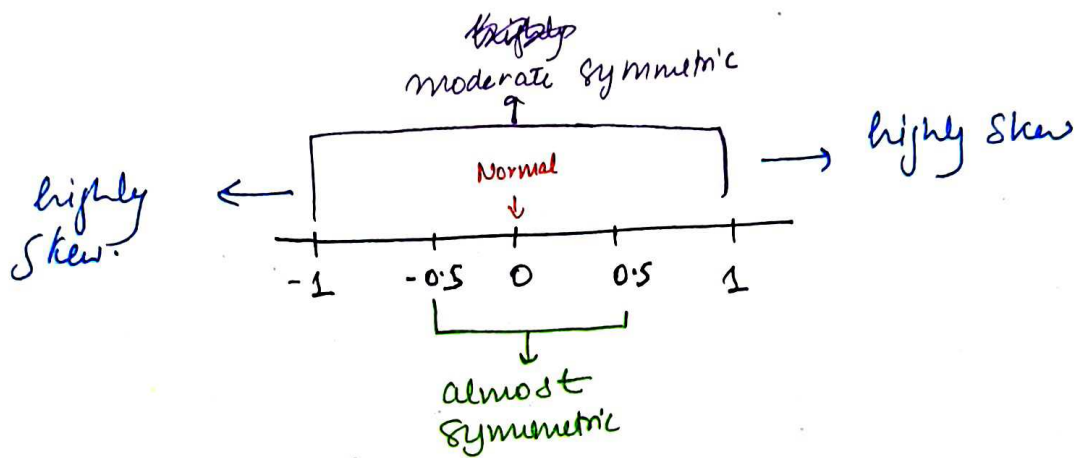 moderate symmetric
highly skew
Normal
highly
skew.
-1 -0.5 0 0.5 1
almost
symmetric